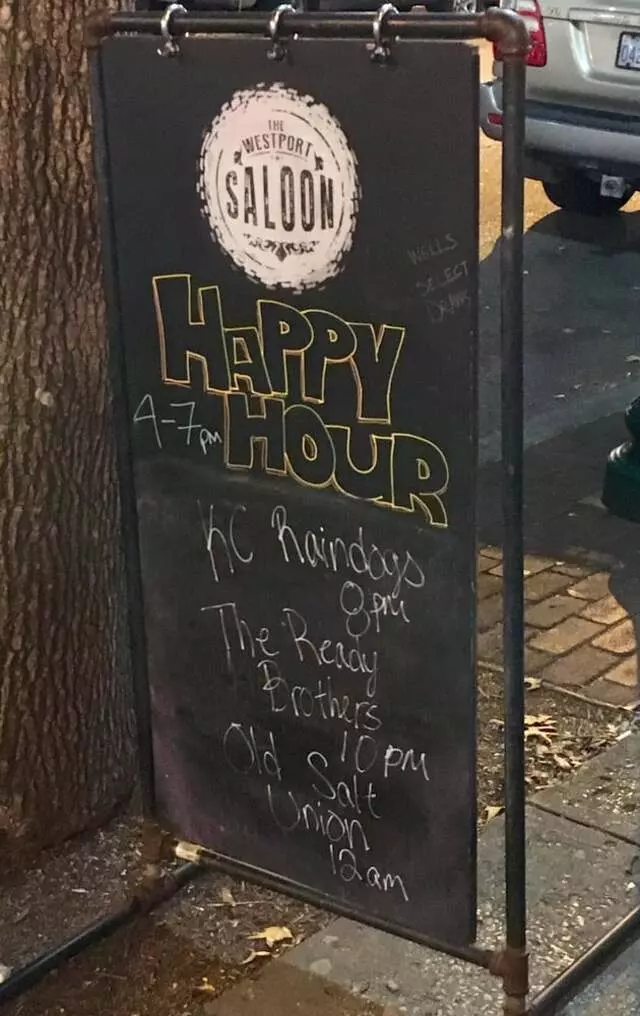 THE
WESTPORT
SALOON
WELLS
SELECT
HAPPY
4-7pm HOUR
KC Raindogs
8pm
The Ready
Brothers
10pm
Old Salt
Union
12am